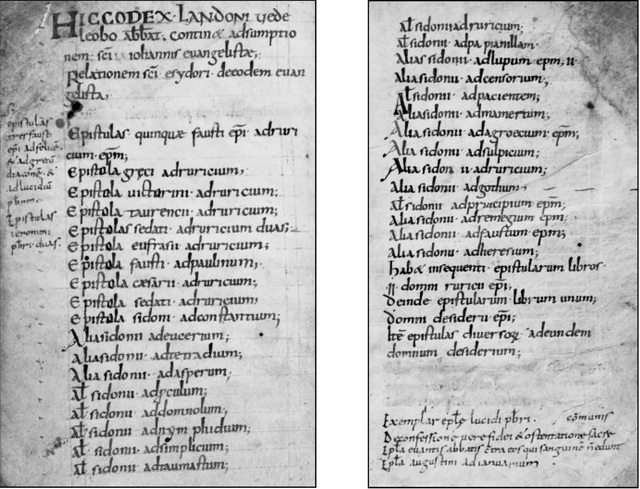 HIC CODEX · LANDONI uede
leobo abbat, continet adsumptio
nem · sci iohannis euangelistæ;
Relationem sci esydori · de eodem euan
gelista;
Epistulas quinque fausti epi adruri
cium · epm;
Epistola greci adruricium;
Epistola uictorini adruricium;
Epistola taurencii adruricium;
Epistolas sedati adruricium duas;
Epistola eufrasii adruricium;
Epistola fausti adpaulinum;
Epistola cæsarii adruricium;
Epistola sedati adruricium;
Epistola sidoni adconstantium;
Alia sidonii adeucerium;
alia sidonii adtetradium;
Alia sidonii adasperum;
al sidonii
al sidonii addomnolum;
al sidonii
al sidonii adsimplicum;
al sidonii adtaumastum;
epistulas
fausti
epi adfelice
& adgrecu
& 
adlucidu
pbrm
Epistulas
pbri duas
al sidonii adruricium;
al sidonii adpapianillam
Alias sidonii · adlupum epm, ii
alia sidonii adcensorium,
al sidonii adpacientem;
Alia sidonii · admamertum;
Alia sidonii · adagroecum epm;
Alia sidonii · adsulpicium;
Alia sidon ii adruricium;
Alia sidonii · adgothum
al sidonii adprincipium epm;
Alia sidonii · adremegium epm;
Alia sidonii · adfaustum epm;
Alia sidonii · adheresium;
habet insequenti epistularum libros
ii domni ruricii epi;
Deinde epistularum librum unum;
Domni desiderii epi;
Ite epistulas diuersorum adeundem
domnum desiderium;
Exemplar lucidi pbri · comunis
De confessione uere fidei & ostentatione sacre
Epla euantis abbatis cotra eos qui sanguine
Epla augustini adianuarium